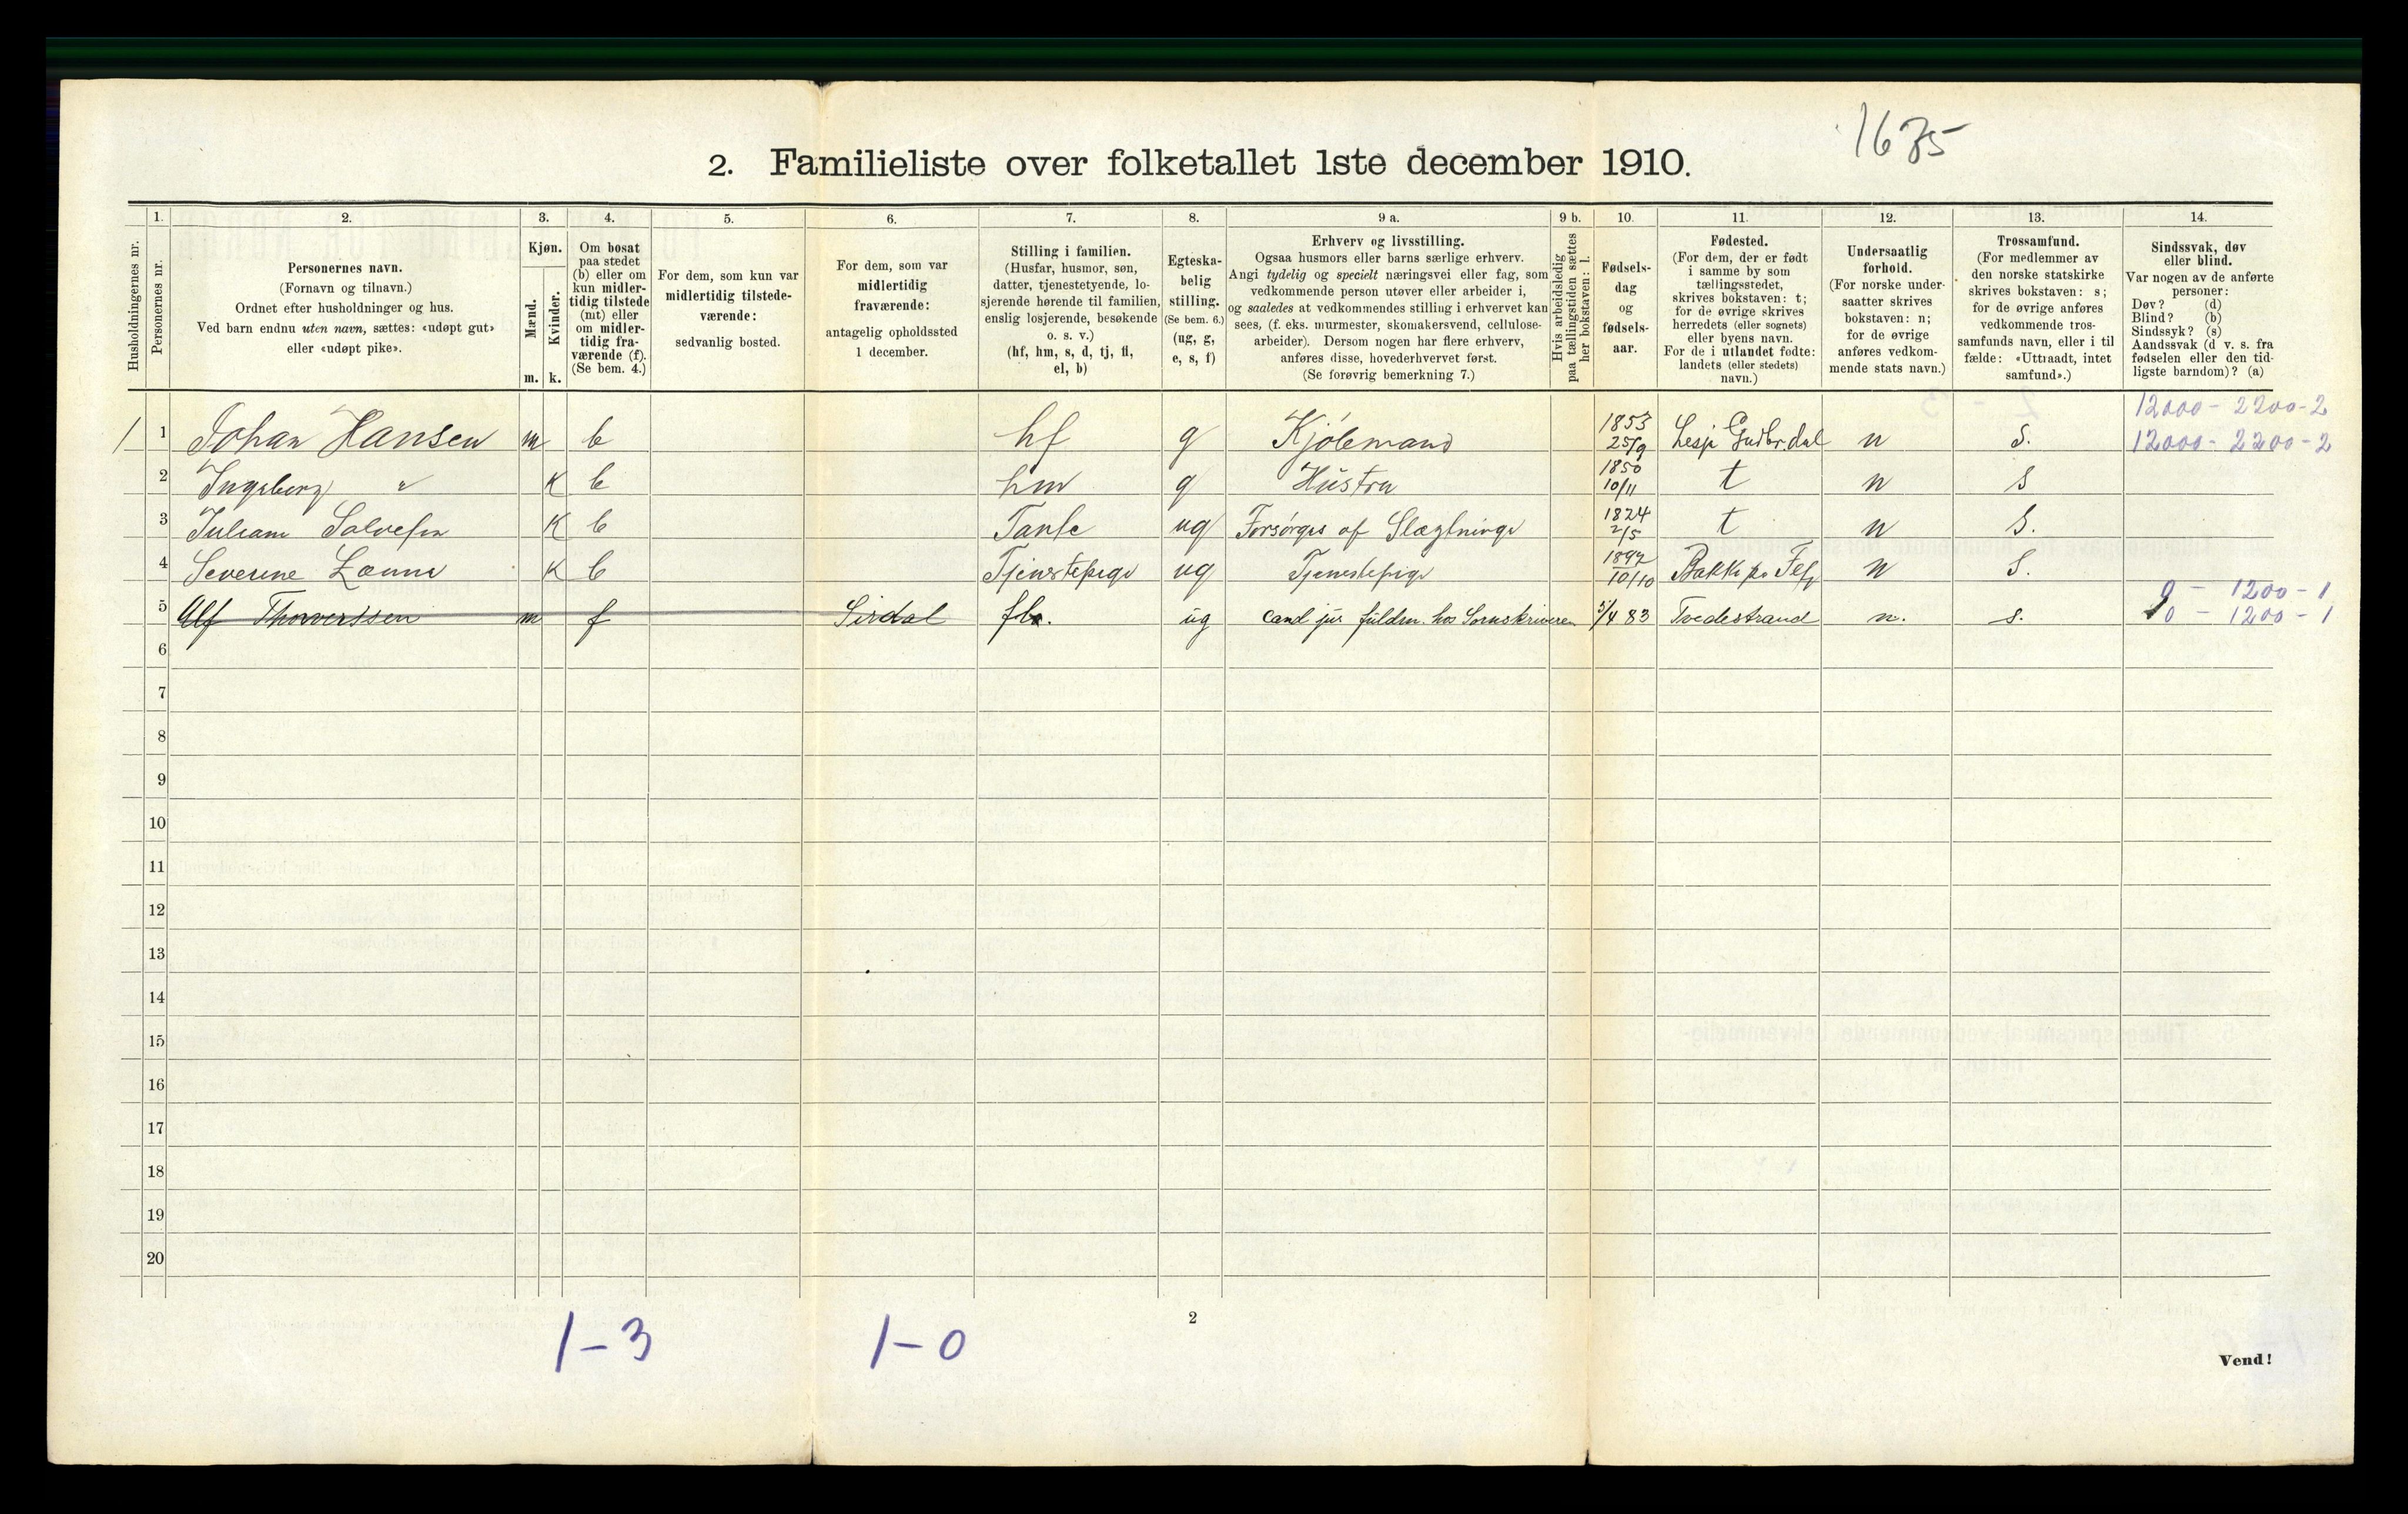 1675
2. Familieliste over folketallet 1ste december 1910.
1. 2. 3. 4. 5. 6. 7. 8. 9 a. 9 b. 10. 11. 12. 13. 14.
Husholdningernes nr.
Personernes nr.
Personernes navn.
(Fornavn og tilnavn.)
Ordnet efter husholdninger og hus.
Ved barn endnu uten navn, sættes: «udøpt gut»
eller «udøpt pike».
Kjøn.
Mænd.
Kvinder.
m. k.
Om bosat
paa stedet
(b) eller om
kun midler-
tidig tilstede
(mt) eller
om midler-
tidig fra-
værende (f).
(Se bem. 4.)
For dem, som kun var
midlertidig tilstede-
værende:
sedvanlig bosted.
For dem, som var
midlertidig
fraværende:
antagelig opholdssted
1 december.
Stilling i familien.
(Husfar, husmor, søn,
datter, tjenestetyende, lo-
sjerende hørende til familien,
enslig losjerende, besøkende
o. s. v.)
(hf, hm, s, d, tj, fl,
el, b)
Egteska-
belig
stilling.
(Se bem. 6.)
(ug, g,
e, s, f)
Erhverv og livsstilling.
Ogsaa husmors eller barns særlige erhverv.
Angi tydelig og specielt næringsvei eller fag, som
vedkommende person utøver eller arbeider i,
og saaledes at vedkommendes stilling i erhvervet kan
sees, (f. eks. murmester, skomakersvend, cellulose-
arbeider). Dersom nogen har flere erhverv,
anføres disse, hovederhvervet først.
(Se forøvrig bemerkning 7.)
Hvis arbeidsledig
paa tællingstiden sættes
her bokstaven: l.
Fødsels-
dag
og
fødsels-
aar.
Fødested.
(For dem, der er født
i samme by som
tællingsstedet,
skrives bokstaven: t;
for de øvrige skrives
herredets (eller sognets)
eller byens navn.
For de i utlandet fødte:
landets (eller stedets)
navn.)
Undersaatlig
forhold.
(For norske under-
saatter skrives
bokstaven: n;
for de øvrige
anføres vedkom-
mende stats navn.)
Trossamfund.
(For medlemmer av
den norske statskirke
skrives bokstaven: s;
for de øvrige anføres
vedkommende tros-
samfunds navn, eller i til
fælde: «Uttraadt, intet
samfund».)
Sindssvak, døv
eller blind.
Var nogen av de anførte
personer:
Døv? (d)
Blind? (b)
Sindssyk? (s)
Aandssvak (d. v. s. fra
fødselen eller den tid-
ligste barndom)? (a)
12000 - 2200 - 2
1 1 Johan Hansen m b hf g Kjøbmand 1853 25/9 Lesje Gudbr.dal n S. 12000 - 2200 - 2
2 Ingeborg " K b hm g Hustru 1850 10/11 t n S
3 Juliane Salvesen K b Tante ug Forsørges af Slægtninge 1824 2/5 t n S.
4 Severine K b Tjenestepige ug Tjenestepige 1892 10/10 Bakke n S.
0 - 1200 - 1
5 Alf m f Sirdal ug cand jur fuldm. hos Sorenskriveren 83 Tvedestrand n. s. 0 - 1200 - 1
6
7
8
9
10
11
12
13
14
15
16
17
18
19
20
1-3 1-0
2
Vend!